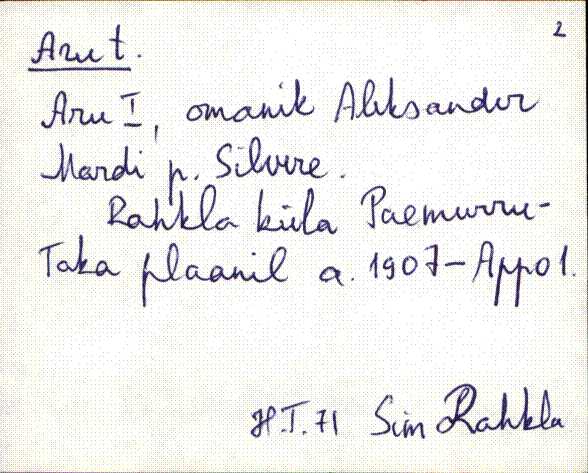 2
Aru t.
Aru I, omanik Aleksander
Mardi p. Silvere.
Rahkla küla Paemurru-
Taka plaanil a. 1907 - Appo1.
H.T. 71 Sim Rahkla